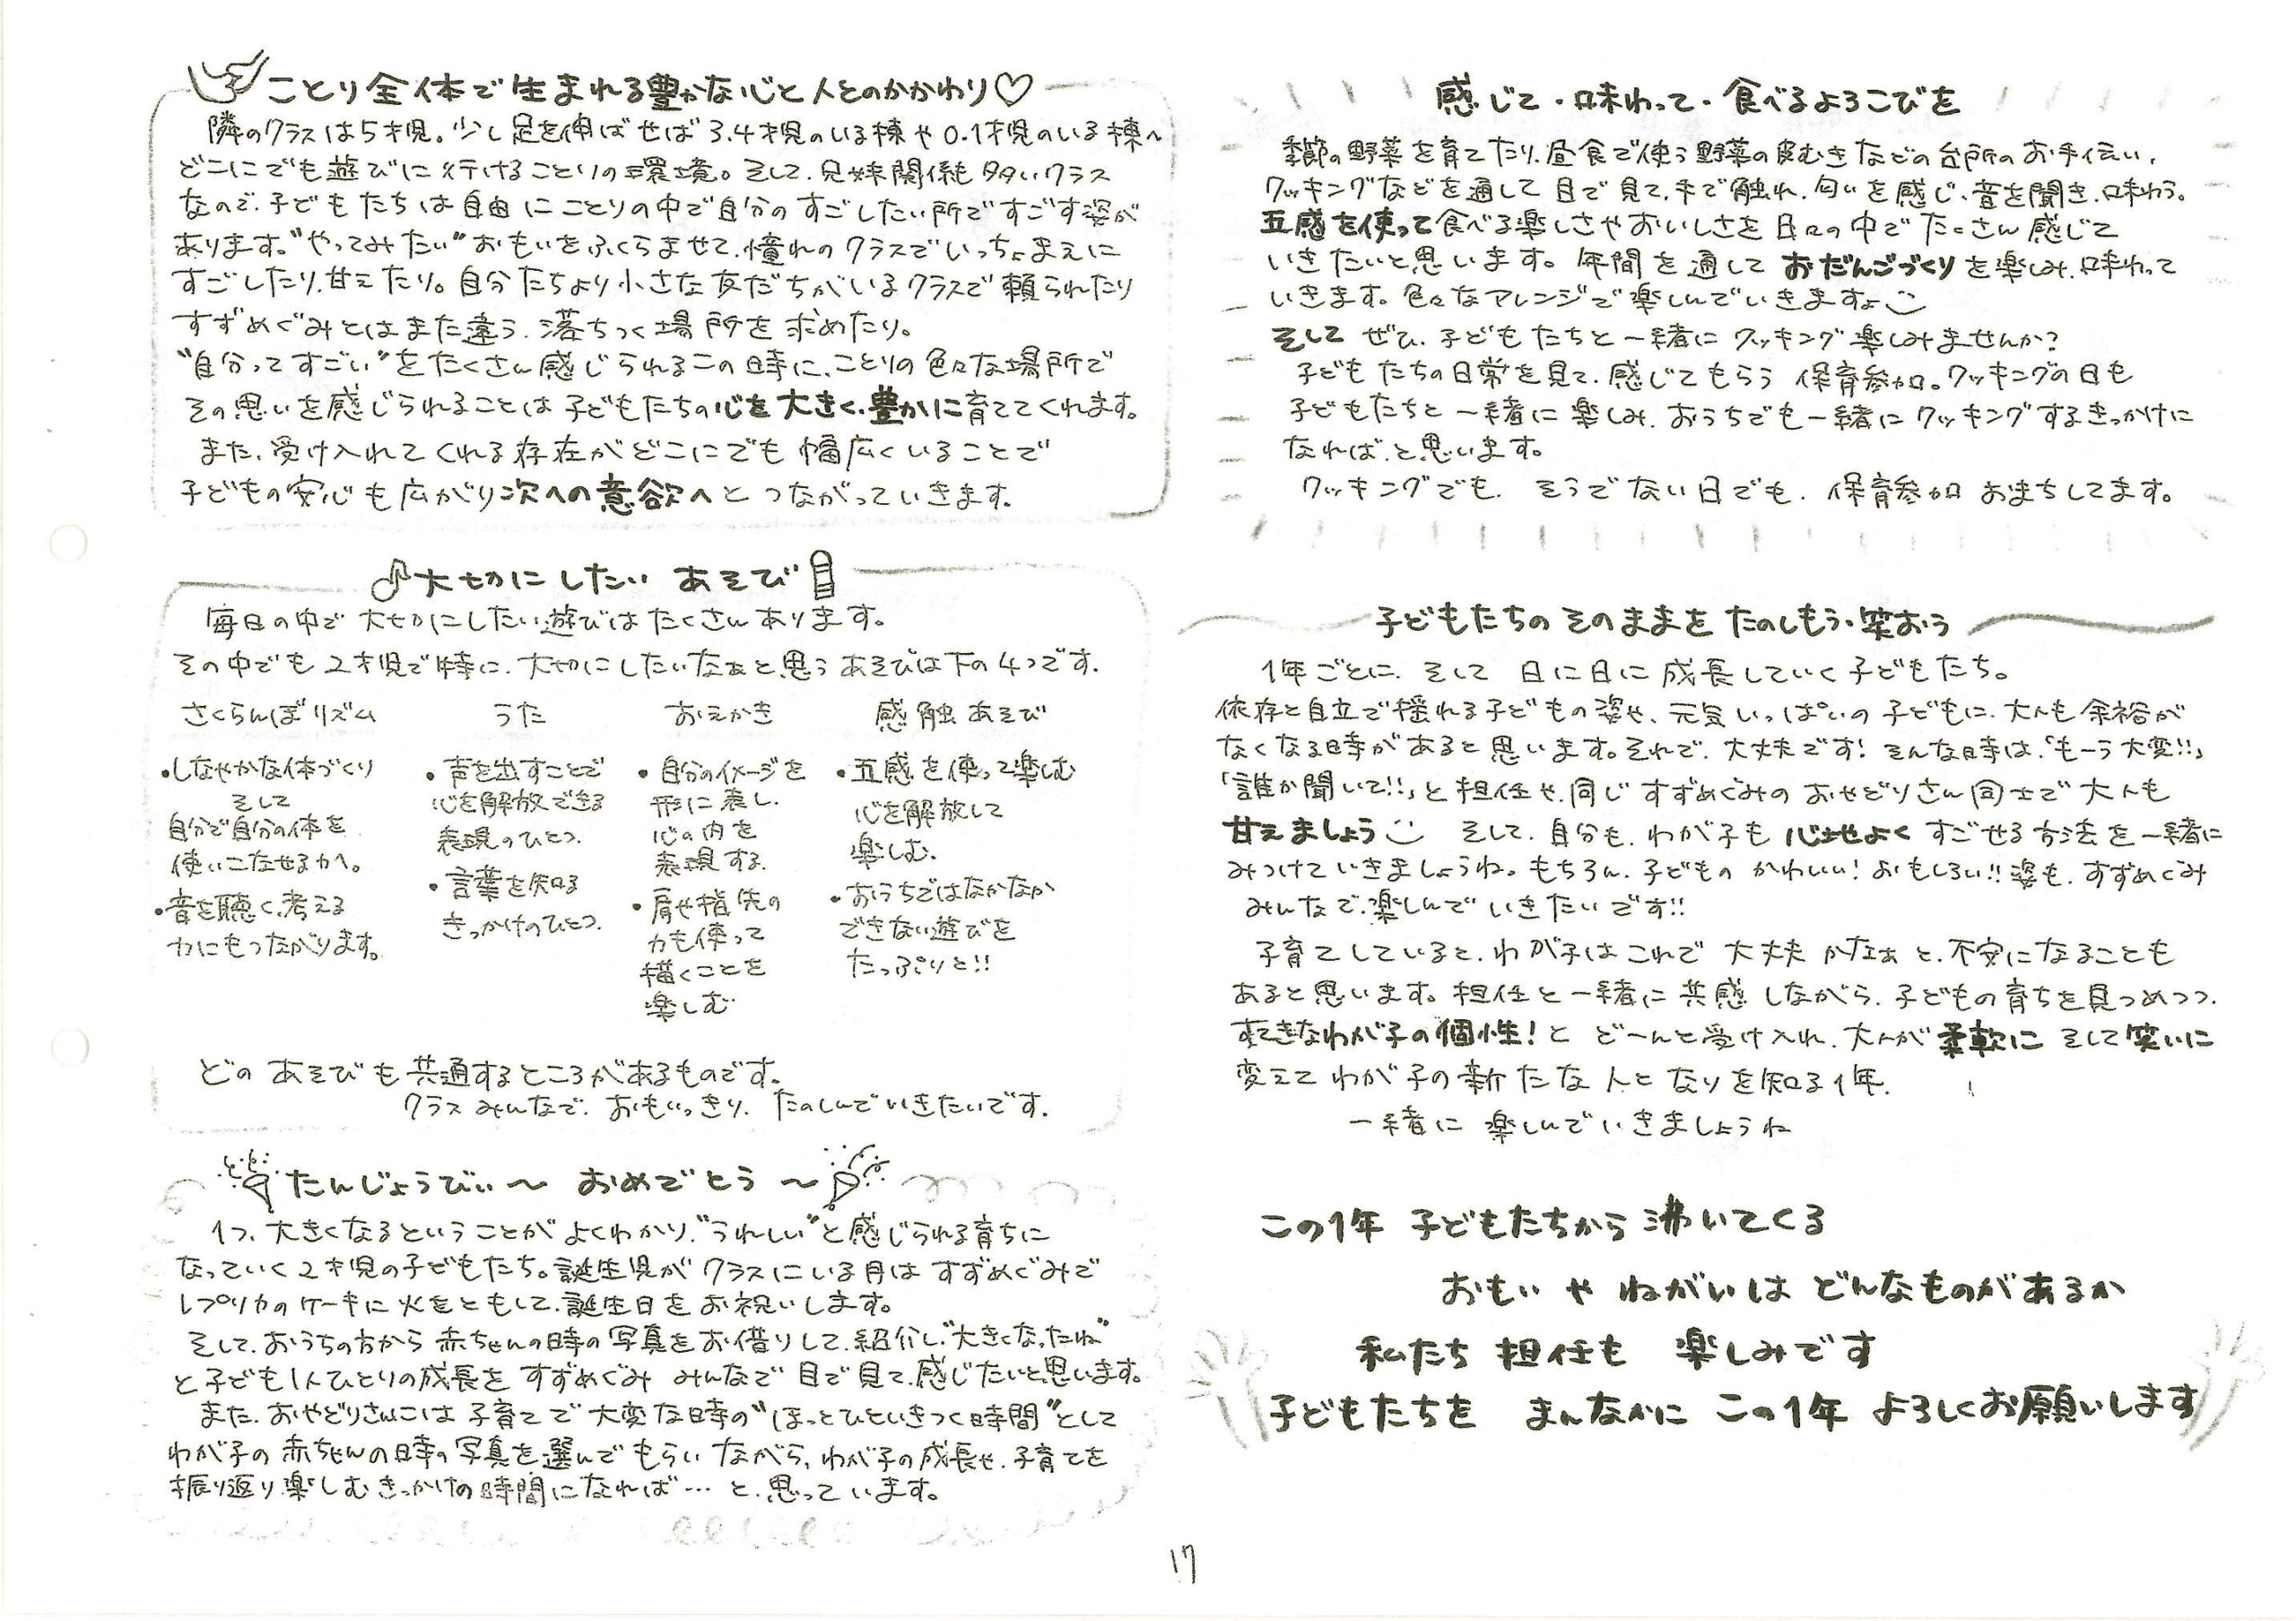 ことり全体で生まれる豊かな心と人とのかかわり♡
隣のクラスは5才児。少し足を伸ばせば3.4才児のいる棟や0.1才児のいる棟へ
どこにでも遊びに行けることりの環境。そして、兄妹関係も多いクラス
なので、子どもたちは自由にことりの中で自分のすごしたい所ですごす姿が
あります。"やってみたい"おもいをふくらませて、憧れのクラスでいっちょまえに
すごしたり、甘えたり。自分たちより小さな友だちがいるクラスで頼られたり
すずめぐみとはまた違う、落ちつく場所を求めたり。
"自分ってすごい"をたくさん感じられるこの時に、ことりの色々な場所で
その思いを感じられることは子どもたちの心を大きく、豊かに育ててくれます。
また、受け入れてくれる存在がどこにでも幅広くいることで
子どもの安心も広がり次への意欲へとつながっていきます。
♪大切にしたい あそび
毎日の中で大切にしたい遊びはたくさんあります。
その中でも2才児で特に、大切にしたいなぁと思うあそびは下の4つです。
さくらんぼリズム
・しなやかな体づくり
そして
自分で自分の体を
使いこなせる力へ。
・音を聴く、考える
力にもつながります。
うた
・声を出すことで
心を解放できる
表現のひとつ。
・言葉を知る
きっかけのひとつ。
おえかき
・自分のイメージを
形に表し、
心の内を
表現する。
・肩や指先の
力も使って
描くことを
楽しむ
感触あそび
・五感を使って楽しむ
心を解放して
楽しむ。
・おうちではなかなか
できない遊びを
たっぷりと!!
どの あそびも共通するところがあるものです。
クラスみんなで、おもいっきり、たのしんでいきたいです。
たんじょうびぃ〜 おめでとう〜
1つ、大きくなるということがよくわかり、"うれしい"と感じられる育ちに
なっていく2才児の子どもたち。誕生児がクラスにいる月はすずめぐみで
レプリカのケーキに火をともして、誕生日をお祝いします。
そして、おうちの方から赤ちゃんの時の写真をお借りして、紹介し、"大きくなったね"
と子ども1人ひとりの成長をすずめぐみ みんなで目で見て、感じたいと思います。
また、おやどりさんには子育てで大変な時の"ほっとひといきつく時間"として
わが子の赤ちゃんの時の写真を選んでもらいながら、わが子の成長や、子育てを
振り返り、楽しむきっかけの時間になれば…と、思っています。
感じて・味わって・食べるよろこびを
季節の野菜を育てたり、昼食で使う野菜の皮むきなどの台所のお手伝い、
クッキングなどを通して目で見て、手で触れ、匂いを感じ、音を聞き、味わう。
五感を使って食べる楽しさやおいしさを日々の中でたくさん感じて
いきたいと思います。年間を通しておだんごづくりを楽しみ、味わって
いきます。色々なアレンジで楽しんでいきますよ
そして ぜひ、子どもたちと一緒にクッキング楽しみませんか?
子どもたちの日常を見て、感じてもらう保育参加。クッキングの日も
子どもたちと一緒に楽しみ、おうちでも一緒にクッキングするきっかけに
なれば、と思います。
クッキングでも、そうでない日でも、保育参加おまちしてます。
子どもたちの そのままを たのしもう・笑おう
1年ごとに、そして 日に日に成長していく子どもたち。
依存と自立で揺れる子どもの姿や、元気いっぱいの子どもに、大人も余裕が
なくなる時があると思います。それで、大丈夫です!そんな時は、「もーう大変!!」
「誰か聞いて!!」と担任や、同じすずめぐみのおやどりさん同士で大人も
甘えましょう そして、自分も、わが子も心地よくすごせる方法を一緒に
みつけていきましょうね。もちろん、子どものかわいい!おもしろい!!姿も、すずめぐみ
みんなで、楽しんでいきたいです!!
子育てしていると、わが子はこれで大丈夫かなぁと、不安になることも
あると思います。担任と一緒に共感しながら、子どもの育ちを見つめつつ、
すてきなわが子の個性!と どーんと受け入れ、大人が柔軟にそして笑いに
変えてわが子の新たな人となりを知る1年。
一緒に楽しんでいきましょうね
この1年 子どもたちから沸いてくる
おもい や ねがいは どんなものがあるか
私たち 担任も 楽しみです
子どもたちを まんなかに この1年 よろしくお願いします
17